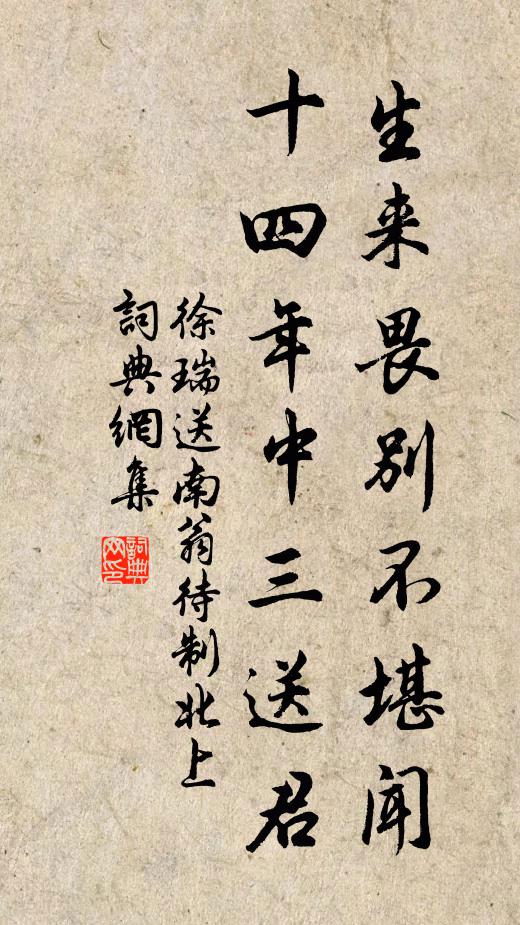 生来畏别不堪闻
十四年中三送君
徐瑞送南翁待制北上
詞典網集
詞典网印